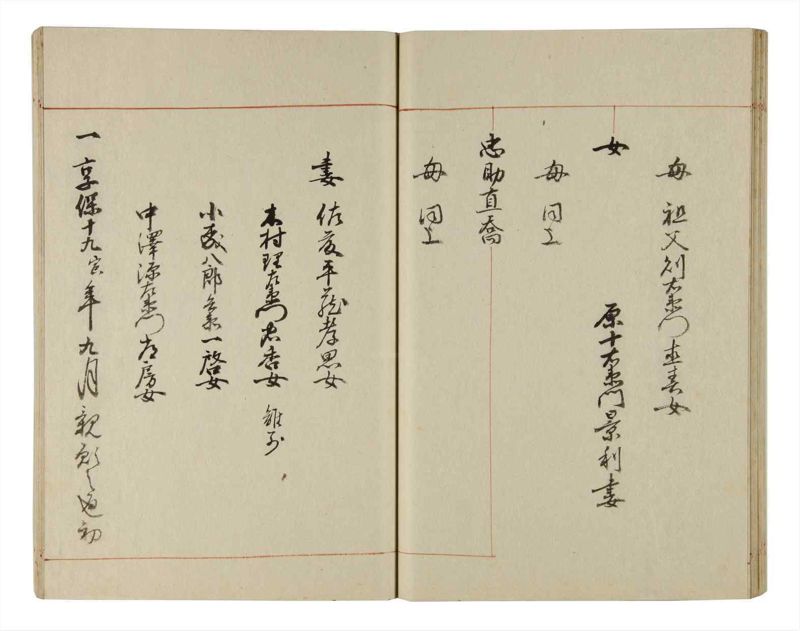 母 祖父別右衛門直春女
女
原十右衛門景利妻
母 同上
忠助直喬
母 同上
妻 佐藤平蔵孝思女
木村理右衛門忠香女 離別
小武八郎兵衛一啓女
中澤源右衛門房女
一享保十九寅年九月親願之通初